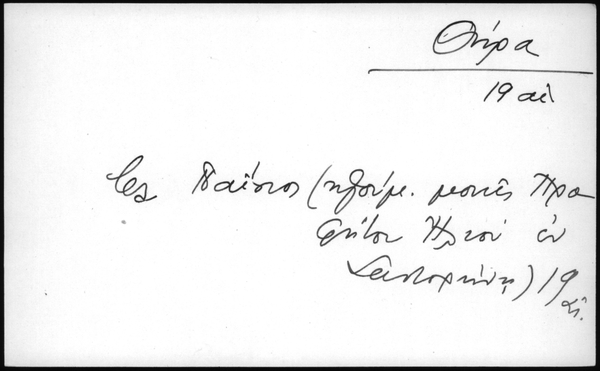 Θήρα
19 αἰ
Παΐσιος (ηγούμ. μονῆς Προ
φήτου Ἠλιού ἐν
Σαντορήνῃ) 19 αἰ.